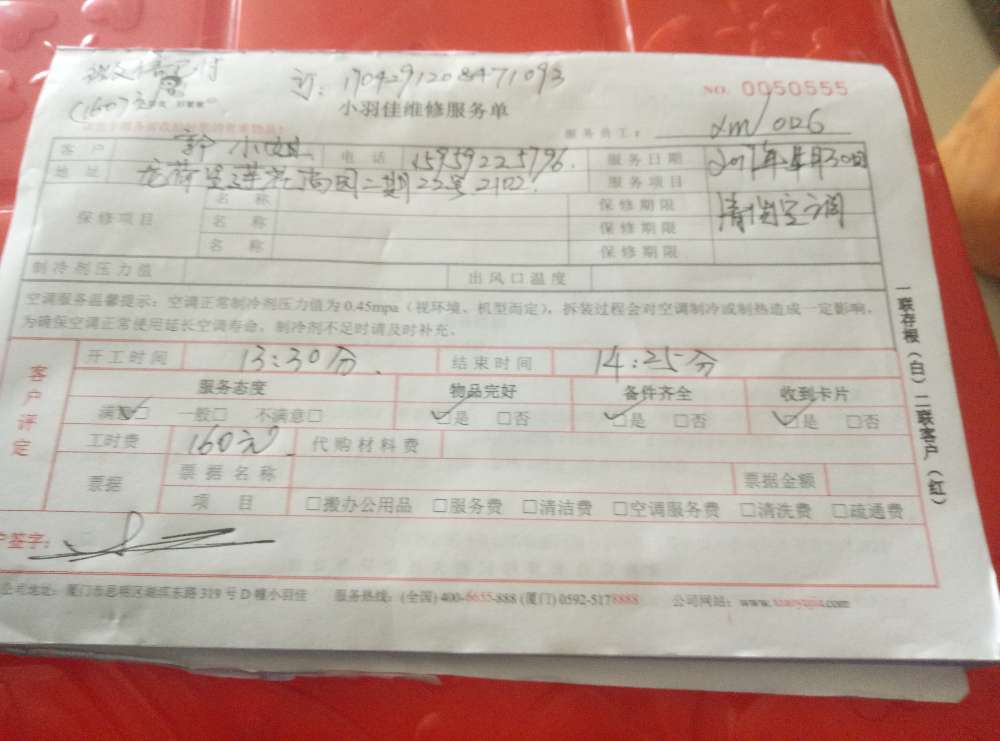 (160)元
订：1704291208471093
NO. 0050555
小羽佳维修服务单
服务员工： xm/026
客户 小姐 电话 15959225796 服务日期 2017年4月30日
地址 二期22号2102 服务项目 清洗空调
保修项目
名称 保修期限
名称 保修期限
名称 保修期限
制冷剂压力值 出风口温度
空调服务温馨提示：空调正常制冷剂压力值为0.45mpa（视环境、机型而定），拆装过程会对空调制冷或制热造成一定影响，
为确保空调正常使用延长空调寿命，制冷剂不足时请及时补充。
客户评定
开工时间 13:30分 结束时间 14:25分
服务态度 物品完好 备件齐全 收到卡片
满意□ 一般□ 不满意□ □是 □否 □是 □否 □是 □否
工时费 160元 代购材料费
票据 票据名称 票据金额
项目 □搬办公用品 □服务费 □清洁费 □空调服务费 □清洗费 □疏通费
户签字：
公司地址：厦门市思明区 东路319号D幢小羽佳 服务热线：(全国) 400-6655-888 (厦门) 0592-5178888 公司网站：www.xiaoyujia.com
一联存根（白）二联客户（红）